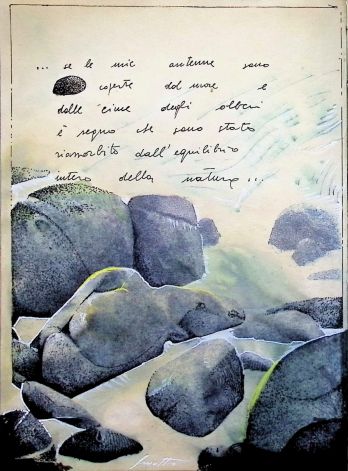 ... se le mie antenne sono
coperte dal mare e
dalle cime degli alberi
è segno che sono stato
riassorbito dall'equilibrio
intero della natura ...